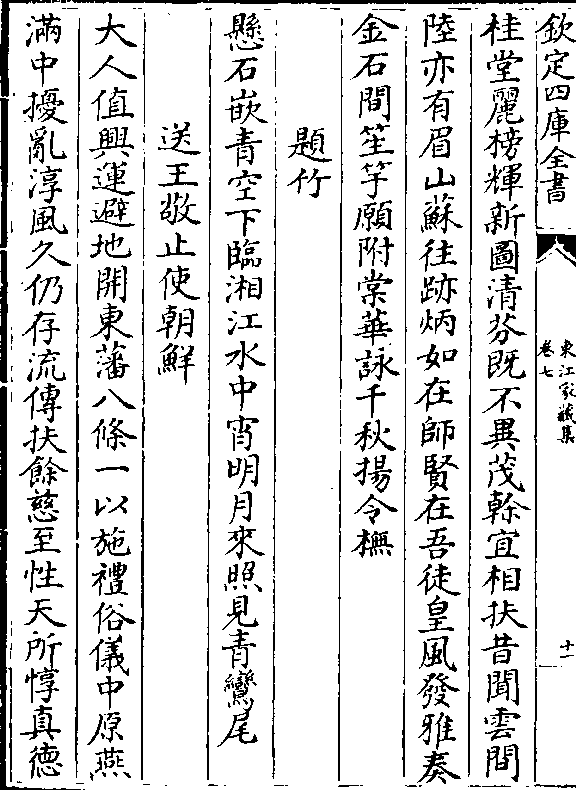 欽定四庫全書
東江家藏集
卷七
十一
桂堂麗榜輝新圖清芬既不異茂榦宜相扶昔聞雲間
陸亦有眉山蘇往跡炳如在師賢在吾徒皇風發雅奏
金石間笙竽願附棠華詠千秋揚令橅
題竹
懸石嵌青空下臨湘江水中宵明月來照見青鸞尾
送王敬止使朝鮮
大人值興運避地開東藩八條一以施禮俗儀中原燕
滿中擾亂淳風久仍存流傳扶餘慈至性天所惇真德